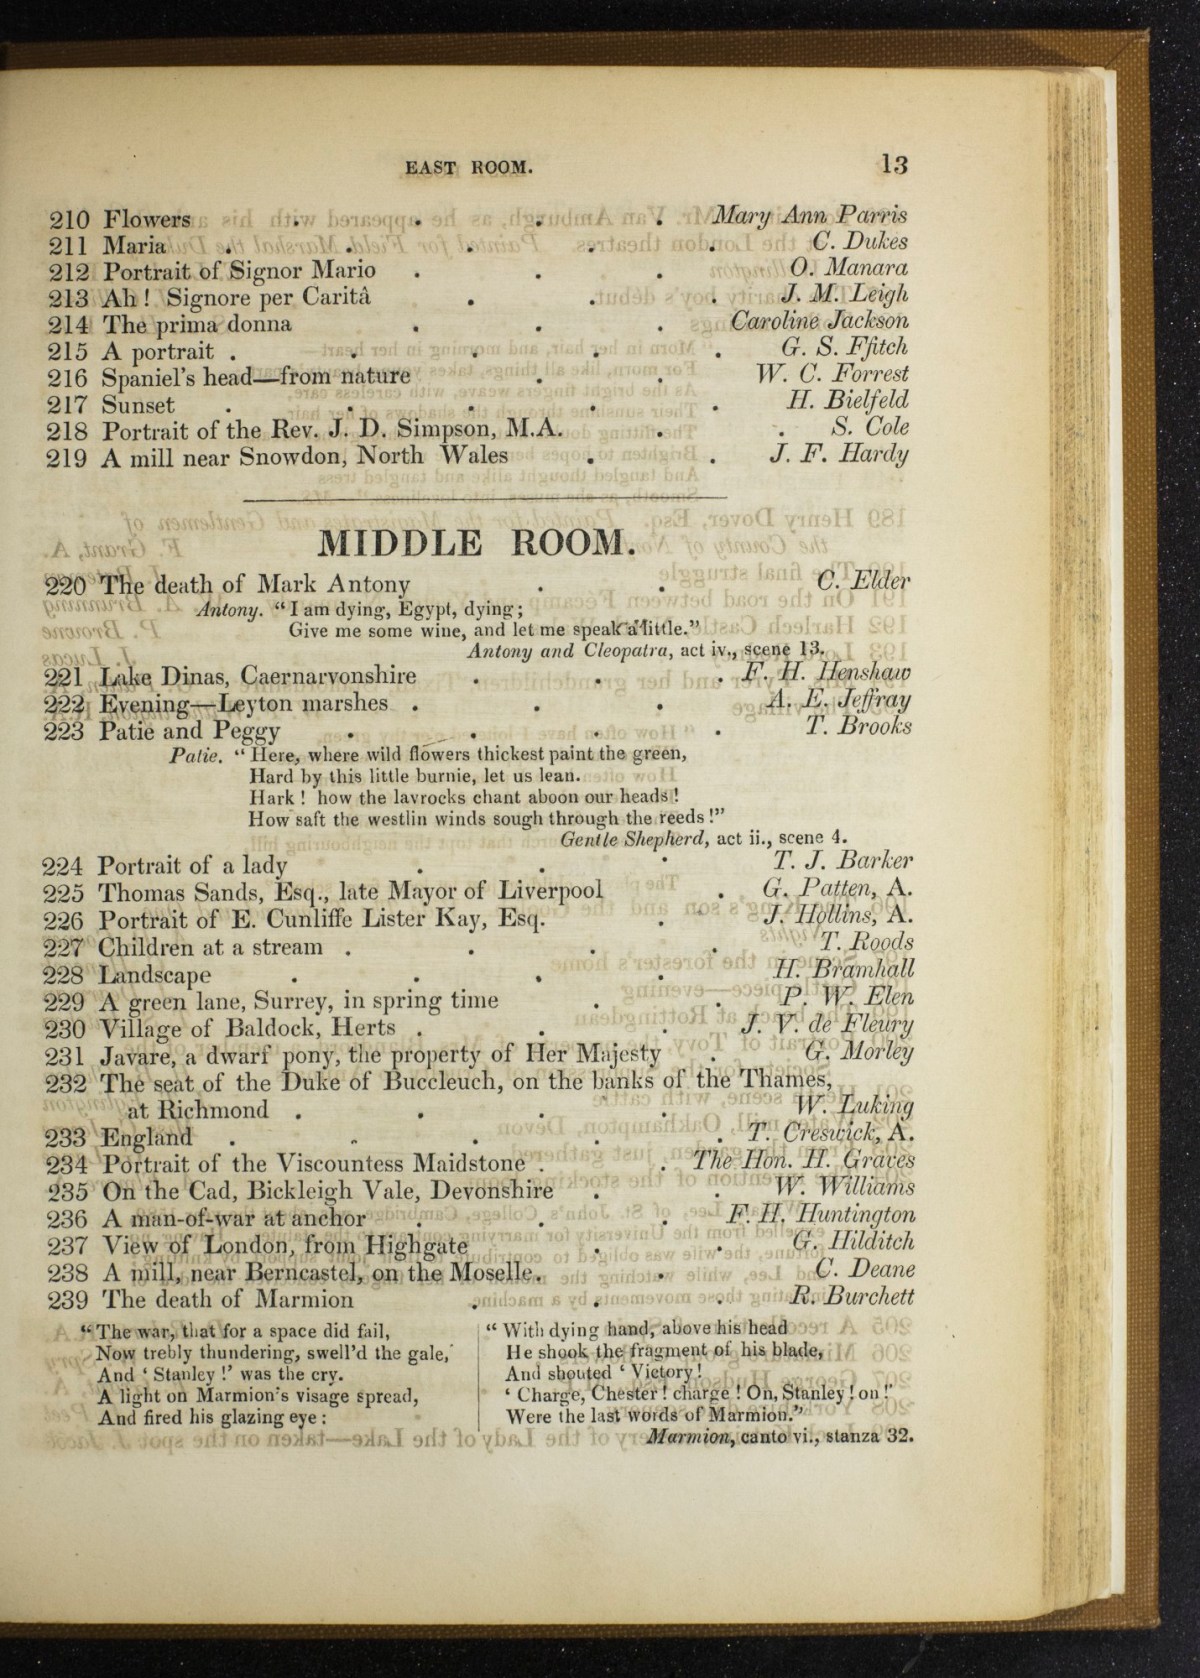 EAST ROOM. 13
210 Flowers . . . . Mary Ann Parris
211 Maria . . . . . C. Dukes
212 Portrait of Signor Mario . . . O. Manara
213 Ah! Signore per Caritâ . . . J. M. Leigh
214 The prima donna . . . Caroline Jackson
215 A portrait . . . . . G. S. Ffitch
216 Spaniel's head—from nature . . W. C. Forrest
217 Sunset . . . . . H. Bielfeld
218 Portrait of the Rev. J. D. Simpson, M.A. . . S. Cole
219 A mill near Snowdon, North Wales . . J. F. Hardy
MIDDLE ROOM.
220 The death of Mark Antony . . C. Elder
Antony. "I am dying, Egypt, dying;
Give me some wine, and let me speak a little."
Antony and Cleopatra, act iv., scene 13.
221 Lake Dinas, Caernarvonshire . . . F. H. Henshaw
222 Evening—Leyton marshes . . . A. E. Jeffray
223 Patie and Peggy . . . . T. Brooks
Patie. "Here, where wild flowers thickest paint the green,
Hard by this little burnie, let us lean.
Hark! how the lavrocks chant aboon our heads!
How saft the westlin winds sough through the reeds!"
Gentle Shepherd, act ii., scene 4.
224 Portrait of a lady . . . T. J. Barker
225 Thomas Sands, Esq., late Mayor of Liverpool . G. Patten, A.
226 Portrait of E. Cunliffe Lister Kay, Esq. . J. Hollins, A.
227 Children at a stream . . . . T. Roods
228 Landscape . . . . H. Bramhall
229 A green lane, Surrey, in spring time . . P. W. Elen
230 Village of Baldock, Herts . . . J. V. de Fleury
231 Javare, a dwarf pony, the property of Her Majesty . G. Morley
232 The seat of the Duke of Buccleuch, on the banks of the Thames,
at Richmond . . . . W. Luking
233 England . . . . . T. Creswick, A.
234 Portrait of the Viscountess Maidstone . . The Hon. H. Graves
235 On the Cad, Bickleigh Vale, Devonshire . . W. Williams
236 A man-of-war at anchor . . . F. H. Huntington
237 View of London, from Highgate . . G. Hilditch
238 A mill, near Berncastel, on the Moselle. . C. Deane
239 The death of Marmion . . . R. Burchett
"The war, that for a space did fail,
Now trebly thundering, swell'd the gale,
And ' Stanley!' was the cry.
A light on Marmion's visage spread,
And fired his glazing eye:
"With dying hand, above his head
He shook the fragment of his blade,
And shouted ' Victory!
' Charge, Chester! charge! On, Stanley! on!'
Were the last words of Marmion."
Marmion, canto vi., stanza 32.